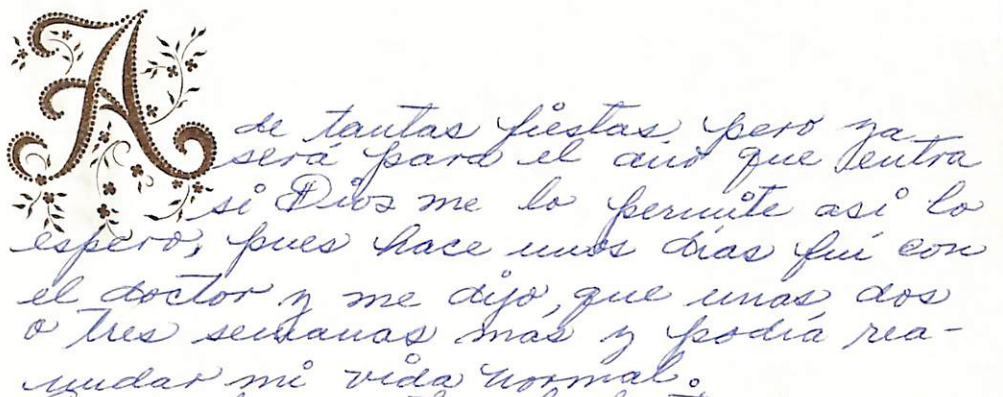 A
de tantas fiestas pero ya
será para el año que entra
si Dios me lo permite así lo
espero, pues hace unos días fuí con
el doctor y me dijo, que unas dos
o tres semanas más y podía rea-
nudar mi vida normal.